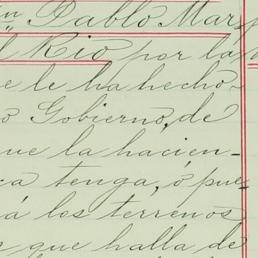 n Pablo Mar
l Rio por la
e le ha hecho
o Gobierno, de
ue la hacien-
ca tenga, ó pue-
á los terrenos
que halla de